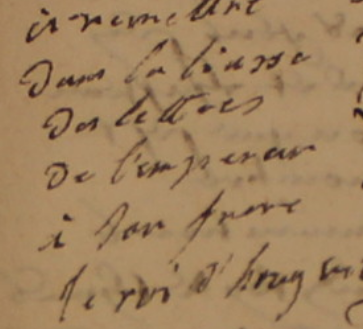 à remettre
dans la liasse
des lettres
de l'empereur
à son frere
le roi d'hong